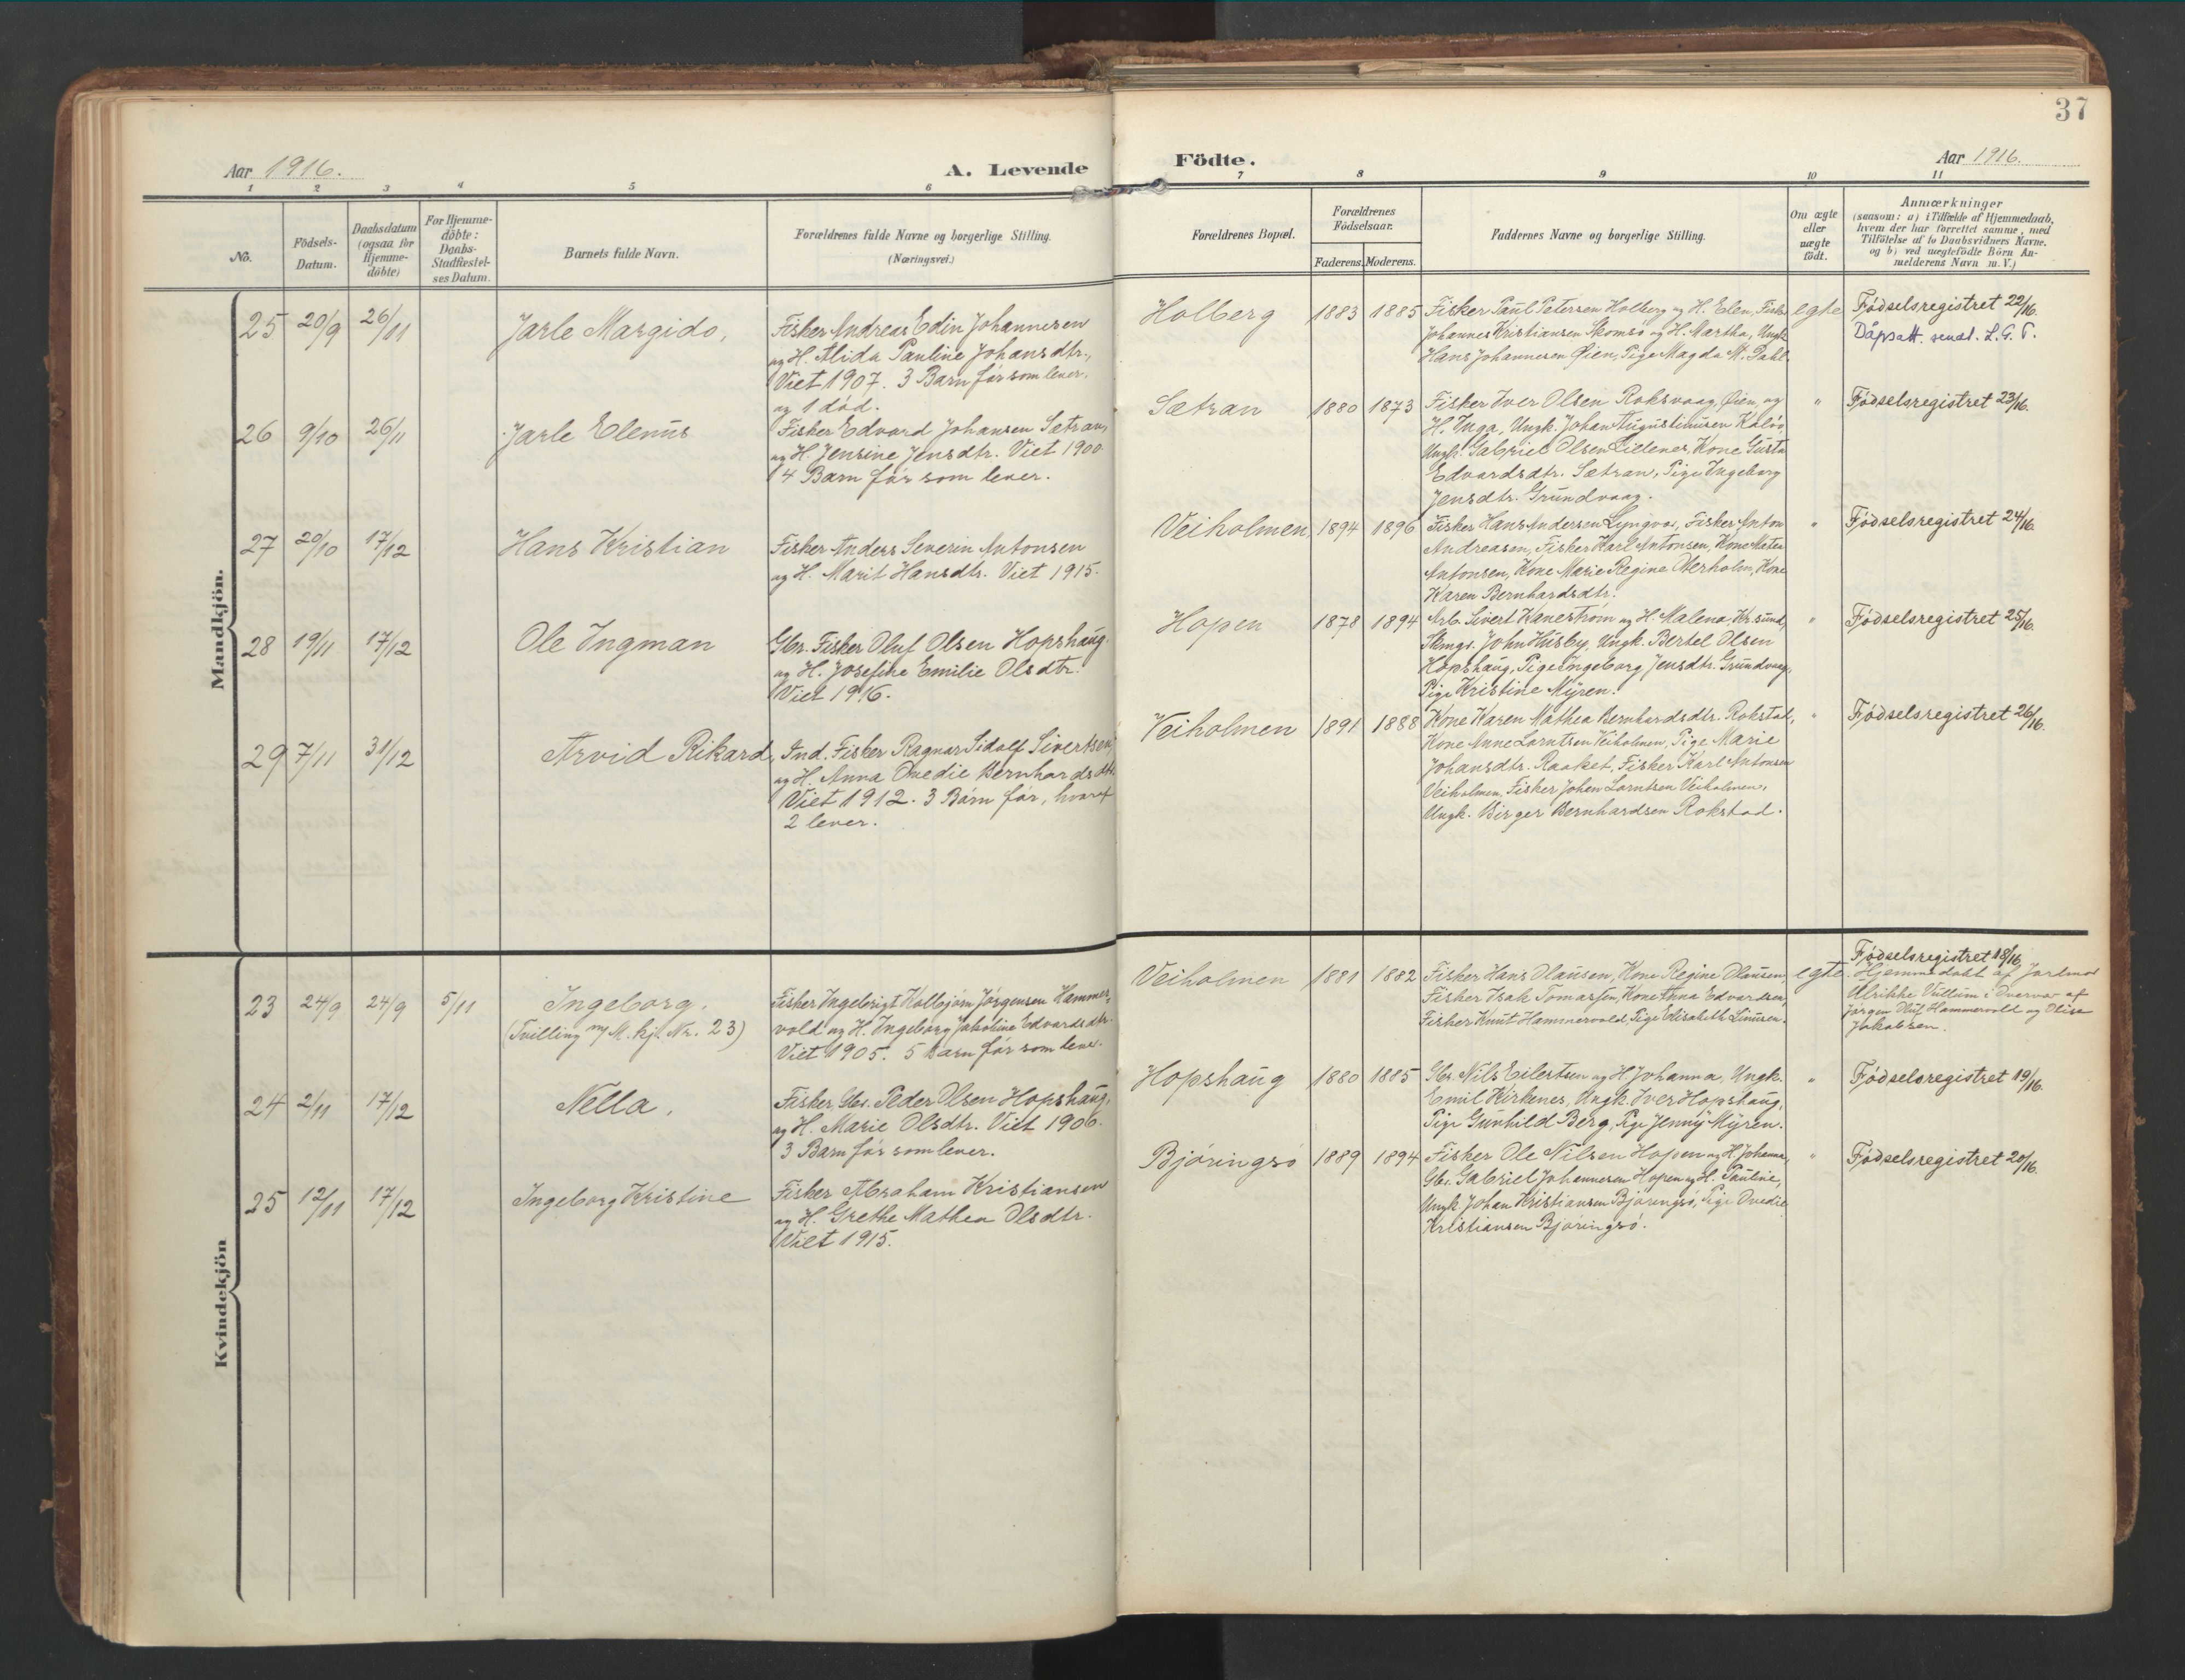 37
Aar 1916.
A. Levende
Födte.
Aar 1916.
1 2 3 4 5 6 7 8 9 10 11
No.
Födsels-
Datum.
Daabsdatum
(ogsaa for
Hjemme-
döbte)
For Hjemme-
döbte:
Daabs-
Stadfæstel-
ses Datum.
Barnets fulde Navn.
Forældrenes fulde Navne og borgerlige Stilling.
(Næringsvei.)
Forældrenes Bopæl.
Forældrenes
Födselsaar.
Faderens. Moderens.
Faddernes Navne og borgerlige Stilling.
Om ægte
eller
uægte
födt.
Anmærkninger
(saasom: a) i Tilfælde af Hjemmedaab,
hvem der har forrettet samme, med
Tilföielse af to Daabsvidners Navne.
og b) ved uægtefödte Börn An-
melderens Navn m. V.)
Mandkjön.
25 20/9 26/11
Jarle Margido,
Fisker Andreas Edin Johannesen
og H. Alida Pauline Johansdtr.,
Viet 1907. 3 Barn før som lever.
og 1 död.
Holberg
1883 1885
Fisker Paul Petersen Holberg og H. Elen, Fisker
Johannes Kristiansen Skomsö og H. Martha, Ungk.
Hans Johannesen Øien, Pige Magda M. Dahl.
egte
Födselsregistret 22/16.
Dåpsatt. sendt. L.G.T.
26 9/10 26/11
Jarle Elenus
Fisker Edvard Johansen Sætran,
og H. Jensine Jensdtr. Viet 1900.
4 Barn för som lever.
Sætran
1880 1873
Fisker Iver Olsen Roksvaag, Øien, og
H. Inga, Ungk. Johan Augustinusen Kalvö,
Ungk. Gabriel Olsen Lillenes, Kone Gusta
Edvardsdtr. Sætran, Pige Ingeborg
Jensdtr. Grundvaag.
"
Födselsregistret 23/16.
27 20/10 17/12
Hans Kristian
Fisker Anders Severin Antonsen
og H. Marit Hansdtr. Viet 1915.
Veiholmen
1894 1896
Fisker Hans Andersen Lyngvær, Fisker Anton
Andreasen, Fisker Karl Antonsen, Kone Mater
Antonsen, Kone Marie Regine Oterholm, Kone
Karen Bernhardsdtr.
"
Födselsregistret 24/16.
28 19/11 17/12
Ole Ingman
Gbr. Fisker Oluf Olsen Hopshaug.
og H. Josefine Emilie Olsdtr.
Viet 1916.
Hopen
1878 1894
Arb. Sivert Kanestrøm og H. Malena, Kr.sund,
John Husby, Ungk. Bertel Olsen
Hopshaug, Pige Ingeborg Jensdtr. Grundvaag,
Pige Kristine Myren.
"
Födselsregistret 25/16.
29 7/11 31/12
Arvid Rikard,
Ind. Fisker Ragnar Sidolf Sivertsen,
og H. Anna Ovedie Bernhardsdtr.
Viet 1912. 3 Börn før, hvoraf
2 lever.
Veiholmen
1891 1888
Kone Karen Mathea Bernhardsdtr. Rokstad,
Kone Anne Lorntsen Veiholmen, Pige Marie
Johansdtr. Raaket, Fisker Karl Antonsen
Veiholmen, Fisker Johan Lorntsen Veiholmen,
Ungk. Birger Bernhardsen Rokstad.
"
Födselsregistret 26/16.
Kvindekjön
23 24/9 24/9 5/11
Ingeborg.
(Tvilling m/ M. kj. Nr. 23)
Fisker Ingebrigt Kolbjørn Jørgensen Hammer-
vold og H. Ingeborg Jakobine Edvardsdtr.
Viet 1905. 5 Barn før som lever.
Veiholmen
1881 1882
Fisker Hans Olausen, Kone Regine Olausen,
Fisker Isak Tomassen, Kone Anna Edvardsen,
Fisker Knut Hammervold, Pige Elisabeth Linusen.
egte.
Födselsregistret 18/16.
Hjemmedöbt af Jordmor
Ulrikke Vullum i Overvær af
Jørgen Oluf Hammervold og Olise
Jakobsen.
24 2/11 17/12
Nella.
Fisker, Gbr. Peder Olsen Hopshaug,
og H. Marie Olsdtr. Viet 1906.
3 Barn før som lever.
Hopshaug
1880 1885
Gbr. Nils Eilertsen og H. Johanna, Ungk.
Emil Kirkenes, Ungk. Iver Hopshaug,
Pige Gunhild Berg, Pige Jenny Myren.
"
Födselsregistret 19/16.
25 12/11 17/12
Ingeborg Kristine
Fisker Abraham Kristiansen
og H. Grethe Mathea Olsdtr.
Viet 1915.
Björingsö
1889 1894
Fisker Ole Nilsen Hopen og H. Johanna,
Gbr. Gabriel Johannesen Hopen og H. Pauline,
Ungk. Johan Kristiansen Björingsö, Pige Ovedie
Kristiansen Björingsö.
"
Födselsregistret 20/16.